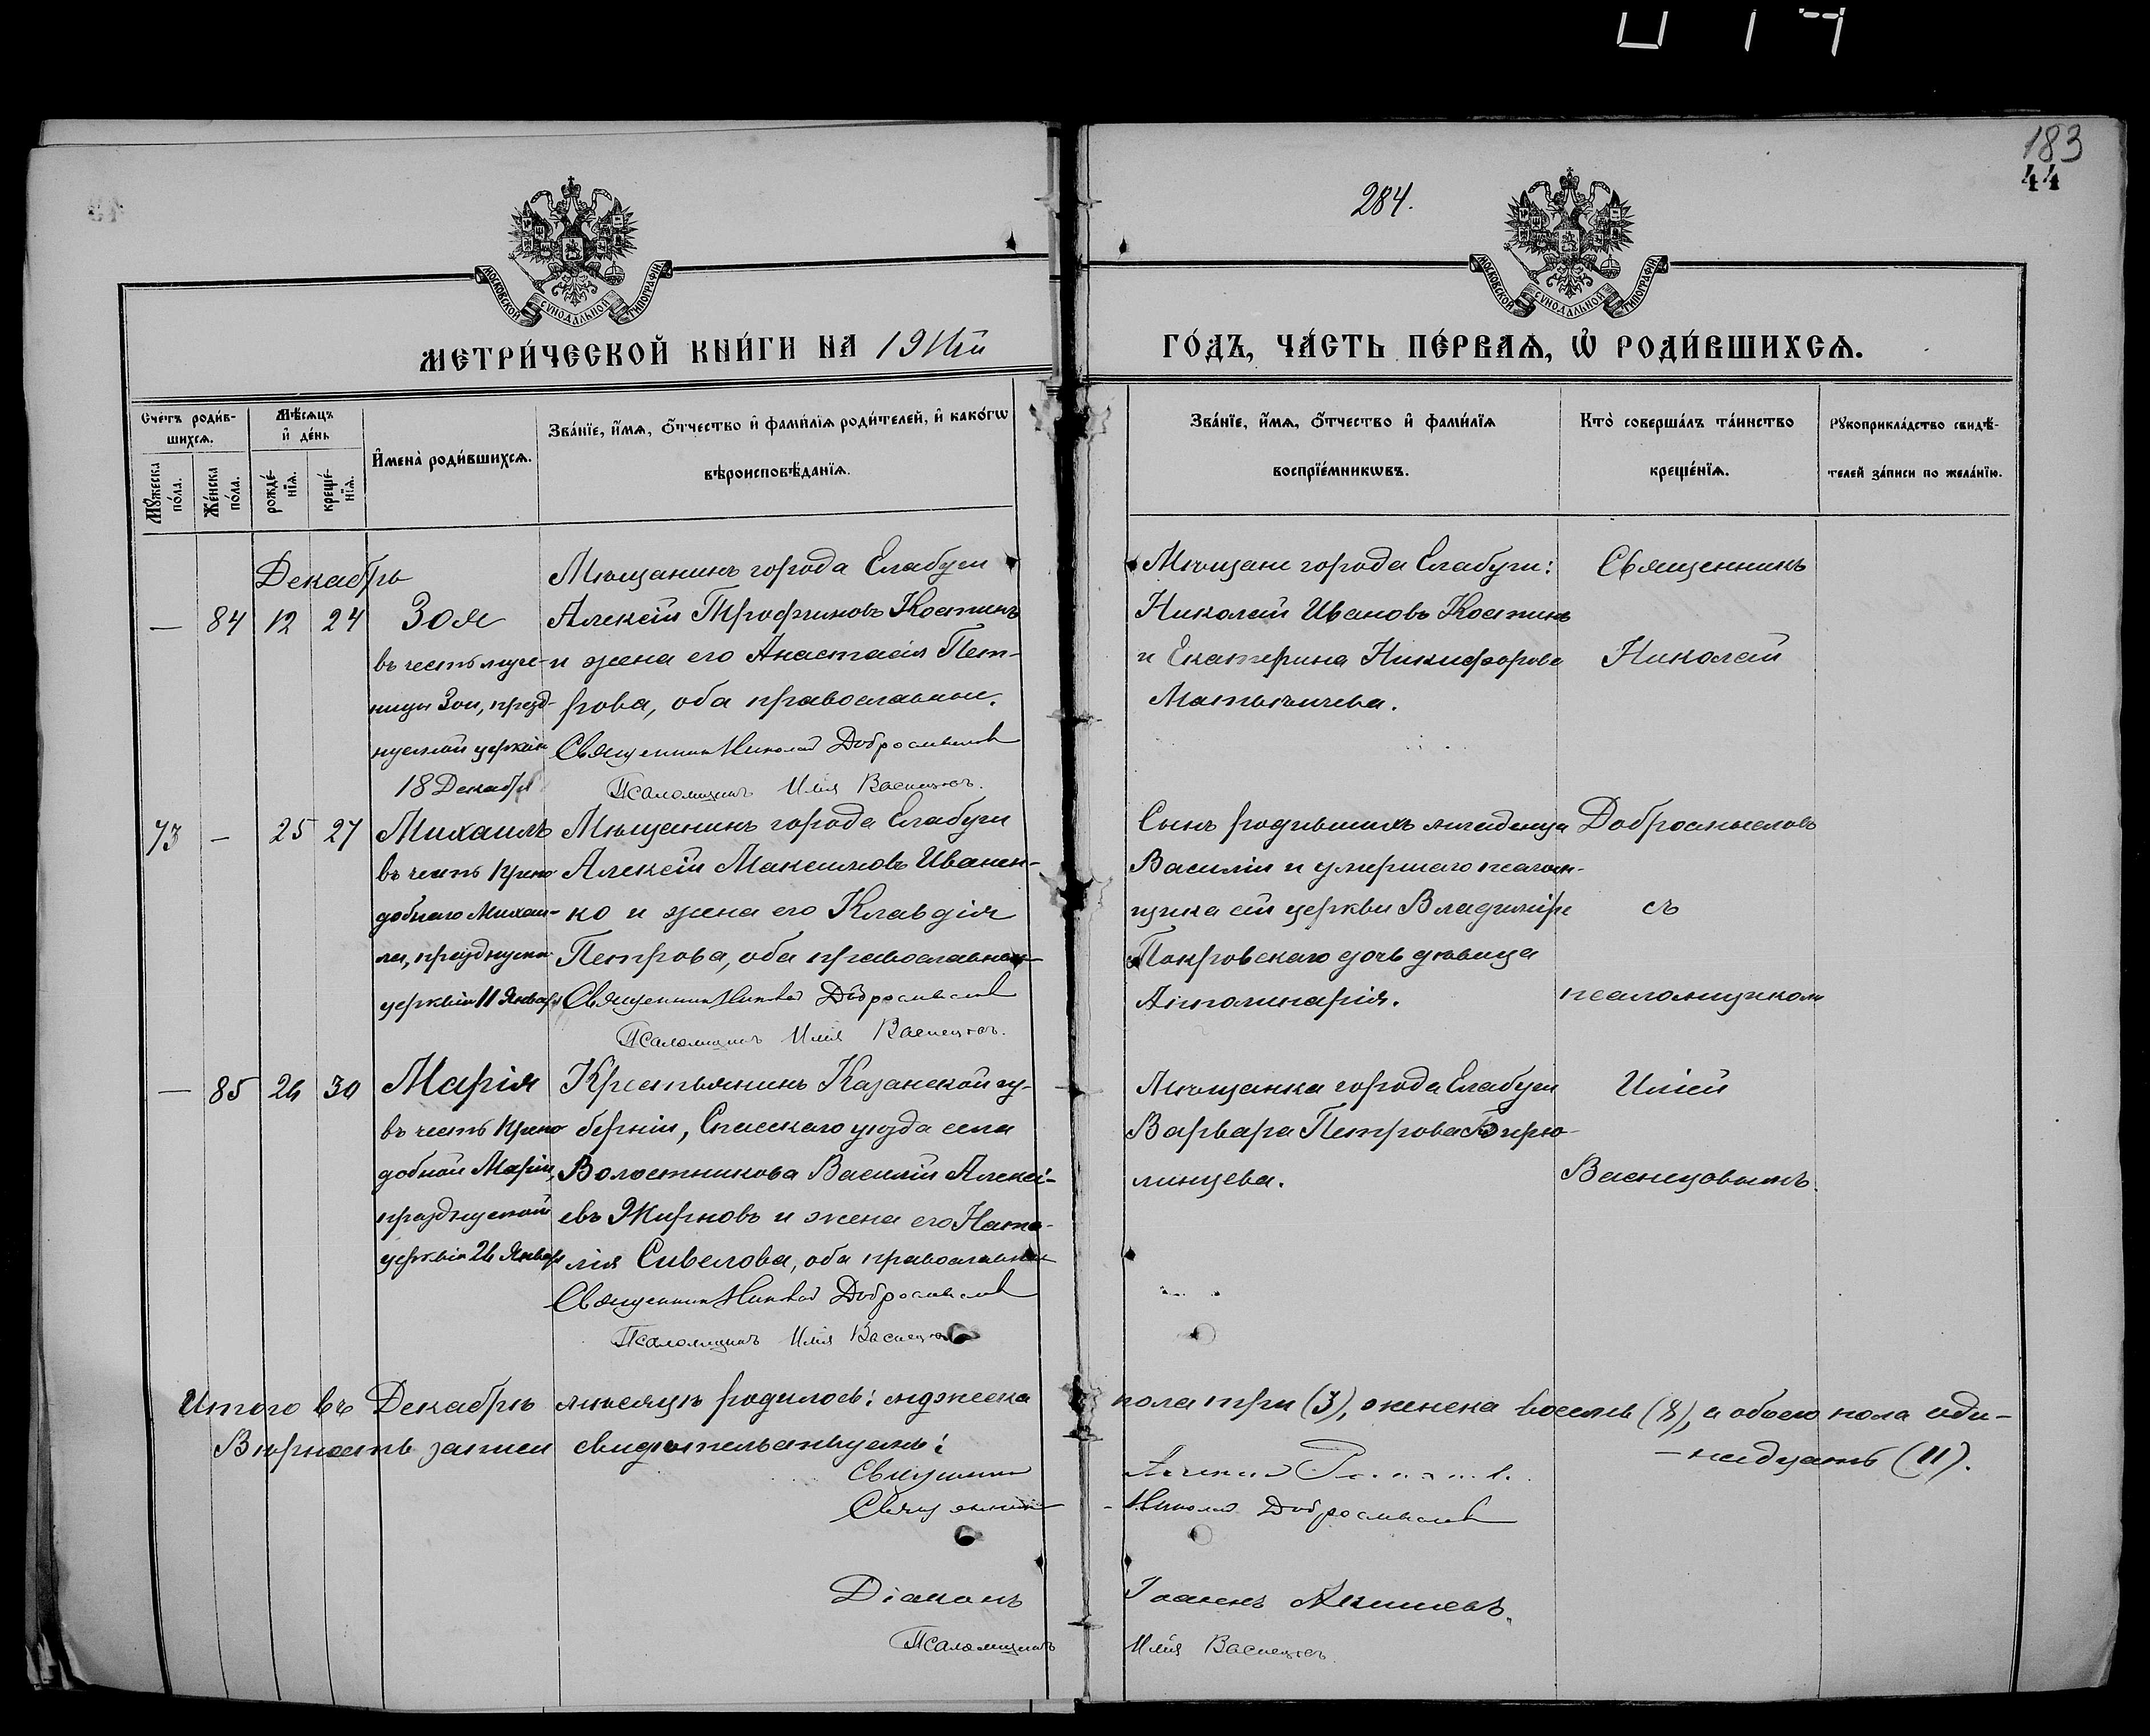 183
44
284.
МОСКОВСКОЙ СУНОДАЛЬНОЙ ТИПОГРАФІИ
МОСКОВСКОЙ СУНОДАЛЬНОЙ ТИПОГРАФІИ
МЕТРИ́ЧЕСКОЙ КНИ́ГИ НА 19
ГО́ДЪ, ЧА́СТЬ ПЕ́РВАѦ, Ѡ҆ РОДИ́ВШИХСѦ.
Сче́тъ роди́в-
шихсѧ.
Мѣ́сѧцъ
и҆ де́нь
Мꙋ́жеска
по́ла.
Же́нска
по́ла.
рожде́-
нїѧ.
креще́-
нїѧ.
И҆мена̀ роди́вшихсѧ.
Зва́нїе, и҆́мѧ, ѻ҆́тчество и҆ фами́лїѧ роди́телей, и҆ како́гѡ
вѣроисповѣ́данїѧ.
Зва́нїе, и҆́мѧ, ѻ҆́тчество и҆ фами́лїѧ
воспрїе́мникѡвъ.
Кто̀ соверша́лъ та́инство
креще́нїѧ.
Рꙋкоприкла́дство свидѣ́-
телей за́писи по жела́нїю.
Декабрь
— 84 12 24
Зоя
въ честь муче-
ницы Зои, празд-
нуемой церковію
18 Декабря
Мѣщанинъ города Елабуги
Алексій Трофимовъ Костинъ
и жена его Анастасія Пет-
рова, оба православные.
Священникъ Николай Добросмысловъ
Псаломщикъ Илія Васнецовъ.
Мѣщане города Елабуги:
Николай Ивановъ Костинъ
и Екатерина Никифорова
Священникъ
Николай
73 — 25 27
Михаилъ
въ честь препо
добнаго Михаи-
ла, празднуема
церквію 11 Января
Мѣщанинъ города Елабуги
Алексій Максимовъ Иванен-
ко и жена его Клавдія
Петрова, оба православные
Священникъ Николай Добросмысловъ
Псаломщикъ Илія Васнецовъ.
Сынъ родившихъ младенца
Василій и умершаго псалом-
щика сей церкви Владиміра
Покровскаго дочь дѣвица
Апполинарія.
Добросмысловъ
съ
псаломщикомъ
— 85 26 30
Марія
въ честь препо
добной Маріи,
празднуемой
церквію 26 Января
Крестьянинъ Казанской гу-
берніи, Спасскаго уѣзда села
Волостникова Василій Алексѣ-
евъ Жирновъ и жена его Ната-
лія Савелова, оба православные
Священникъ Николай Добросмысловъ
Псаломщикъ Илія Васнецовъ
Мѣщанка города Елабуги
Варвара Петрова Бирю-
линцева.
Иліей
Васнецовымъ.
Итого въ Декабрѣ мѣсяцѣ родилось: мужеска пола три (3), женска восемь (8), а обоего пола оди-
—надцать (11).
Вѣрность записи свидѣтельствуемъ:
Священникъ
Священникъ Николай Добросмысловъ
Діаконъ Іоаннъ
Псаломщикъ Илія Васнецовъ